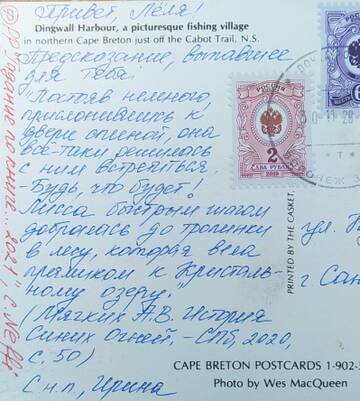 Привет, Лёля!
Dingwall Harbour, a picturesque fishing village
in northern Cape Breton just off the Cabot Trail, N.S.
Предсказание, выпавшее
для тебя.
"Постояв немного,
прислонившись к
двери спиной, она
всё-таки решилась
с ним встретиться.
- Будь, что будет!
Лисса быстрым шагом
добралась до тропинки
в лесу, которая вела
прямиком к Кристаль-
ному озеру."
(Мягких А.В. История
Синих Огней, - СПб, 2020,
с. 50)
С н.п., Ирина
РОССИЯ
2
ДВА РУБЛЯ
2019
PRINTED BY THE CASKET,
ул.
г. Сан
CAPE BRETON POSTCARDS 1-902-
Photo by Wes MacQueen
"Гадание по книге... 2021",